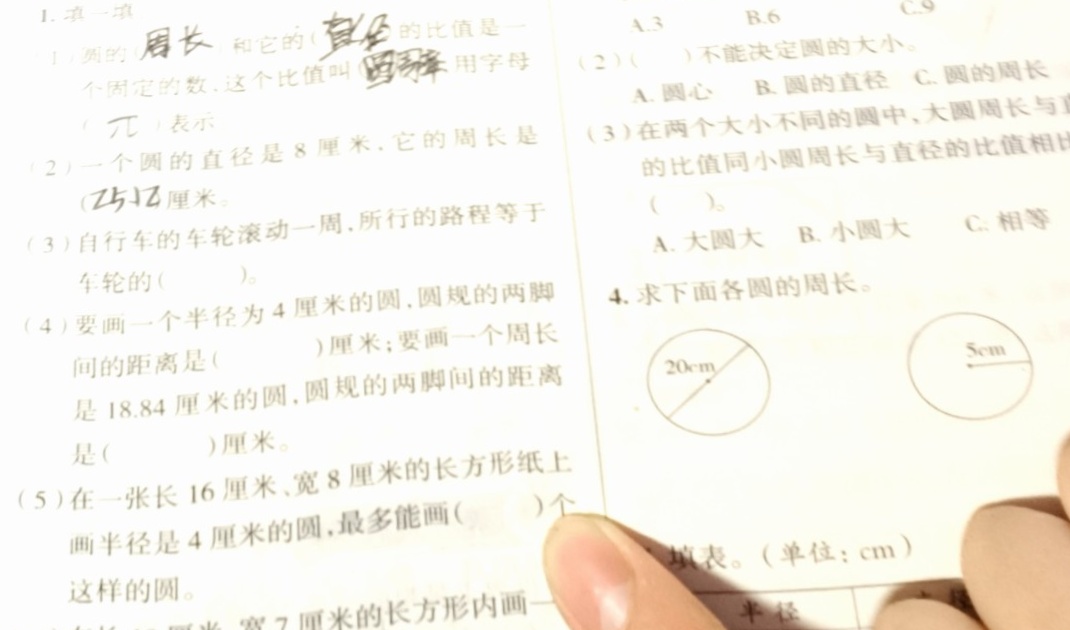 1. 填一填
(1)圆的(周长)和它的(直径)的比值是一
个固定的数,这个比值叫(圆周率 用字母
(π)表示
(2)一个圆的直径是8厘米,它的周长是
(2512厘米。
(3)自行车的车轮滚动一周,所行的路程等于
车轮的( )。
(4)要画一个半径为4厘米的圆,圆规的两脚
间的距离是( )厘米;要画一个周长
是18.84厘米的圆,圆规的两脚间的距离
是( )厘米。
(5)在一张长16厘米、宽8厘米的长方形纸上
画半径是4厘米的圆,最多能画( )个
这样的圆。
厘米、宽7厘米的长方形内画一
A.3 B.6 C.9
(2)( )不能决定圆的大小。
A. 圆心 B. 圆的直径 C. 圆的周长
(3)在两个大小不同的圆中,大圆周长与直
的比值同小圆周长与直径的比值相比
( )。
A. 大圆大 B. 小圆大 C. 相等
4. 求下面各圆的周长。
20cm 5cm
填表。(单位:cm)
半径